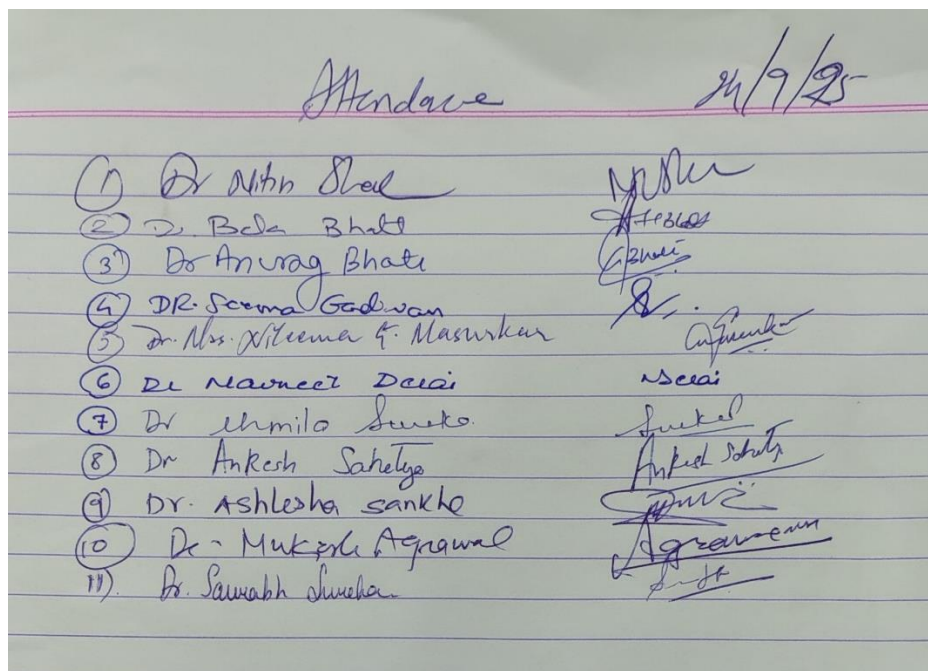 Attendace 24/9/25
1) Dr Nitin Shah
2) Dr. Bela Bhatt
3) Dr Anurag Bhate
4) DR. Seema Gadwan
5) Dr. Mrs. Nileema G. Masurkar
6) Dr Navneet Desai Ndesai
7) Dr Urmila Sureka
8) Dr Ankesh Sahetya Ankesh Sahetya
9) Dr. Ashlesha Sankhe
10) Dr - Mukesh Agrawal
11). Dr. Saurabh Sureka